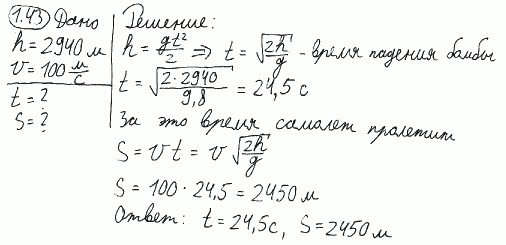 1.43 Дано
h = 2940 м
v = 100 м/с
t = ?
S = ?
Решение:
h = gt²/2 ⇒ t = √(2h/g) - время падения бомбы
t = √(2·2940/9,8) = 24,5 с
За это время самолет пролетит
S = vt = v√(2h/g)
S = 100 · 24,5 = 2450 м
Ответ: t = 24,5с, S = 2450 м